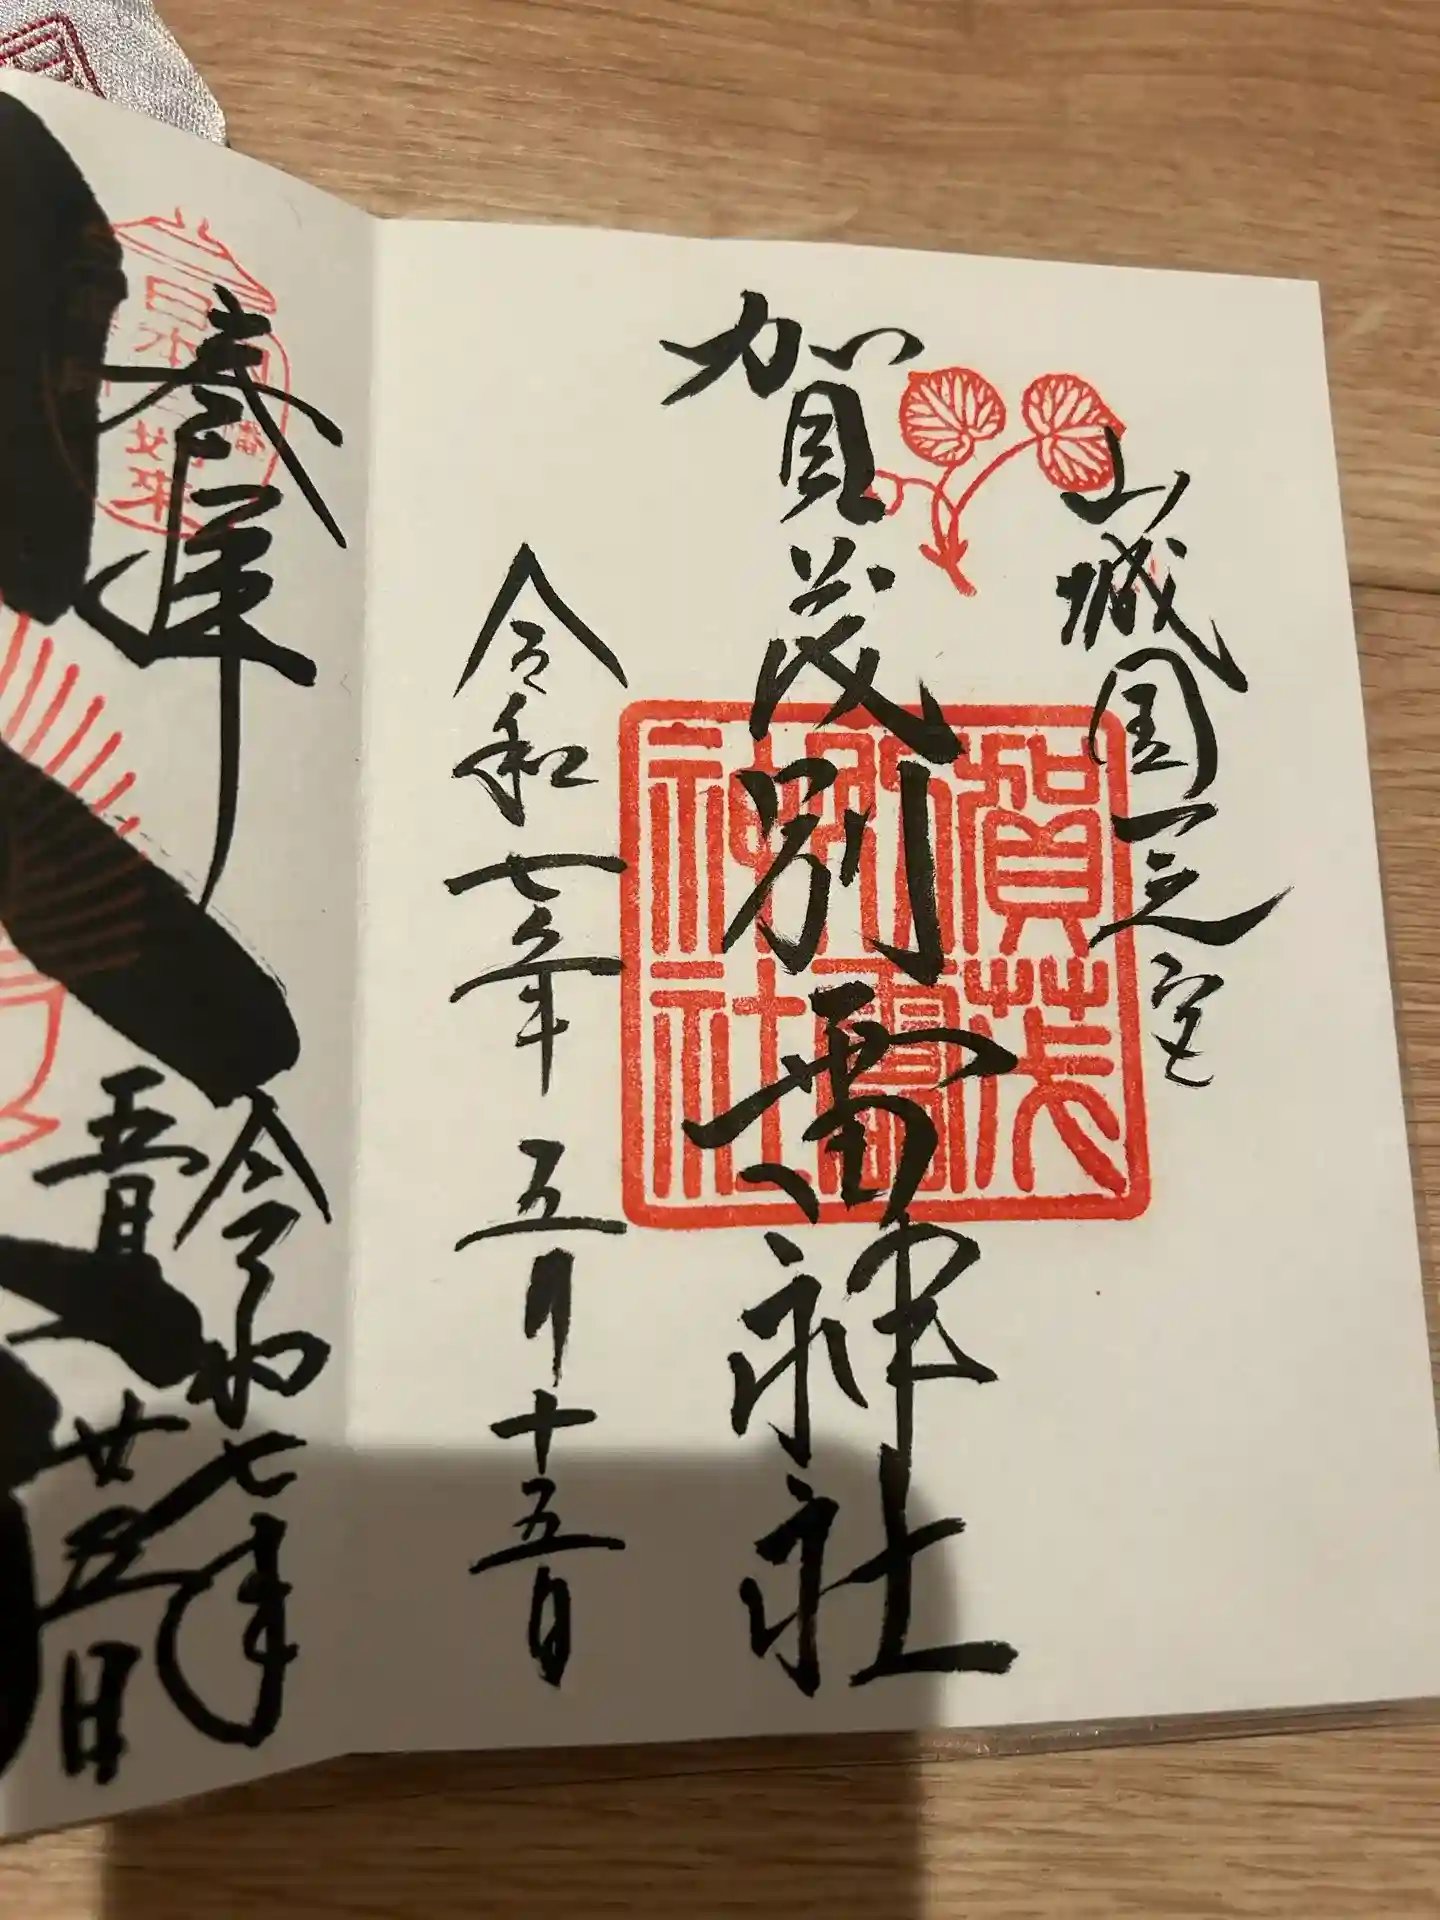 山城国一之宮
賀茂別雷神社
賀茂
別雷
神社
令和七年 五月十五日
奉拝
日本
令和七年
五月
廿五日